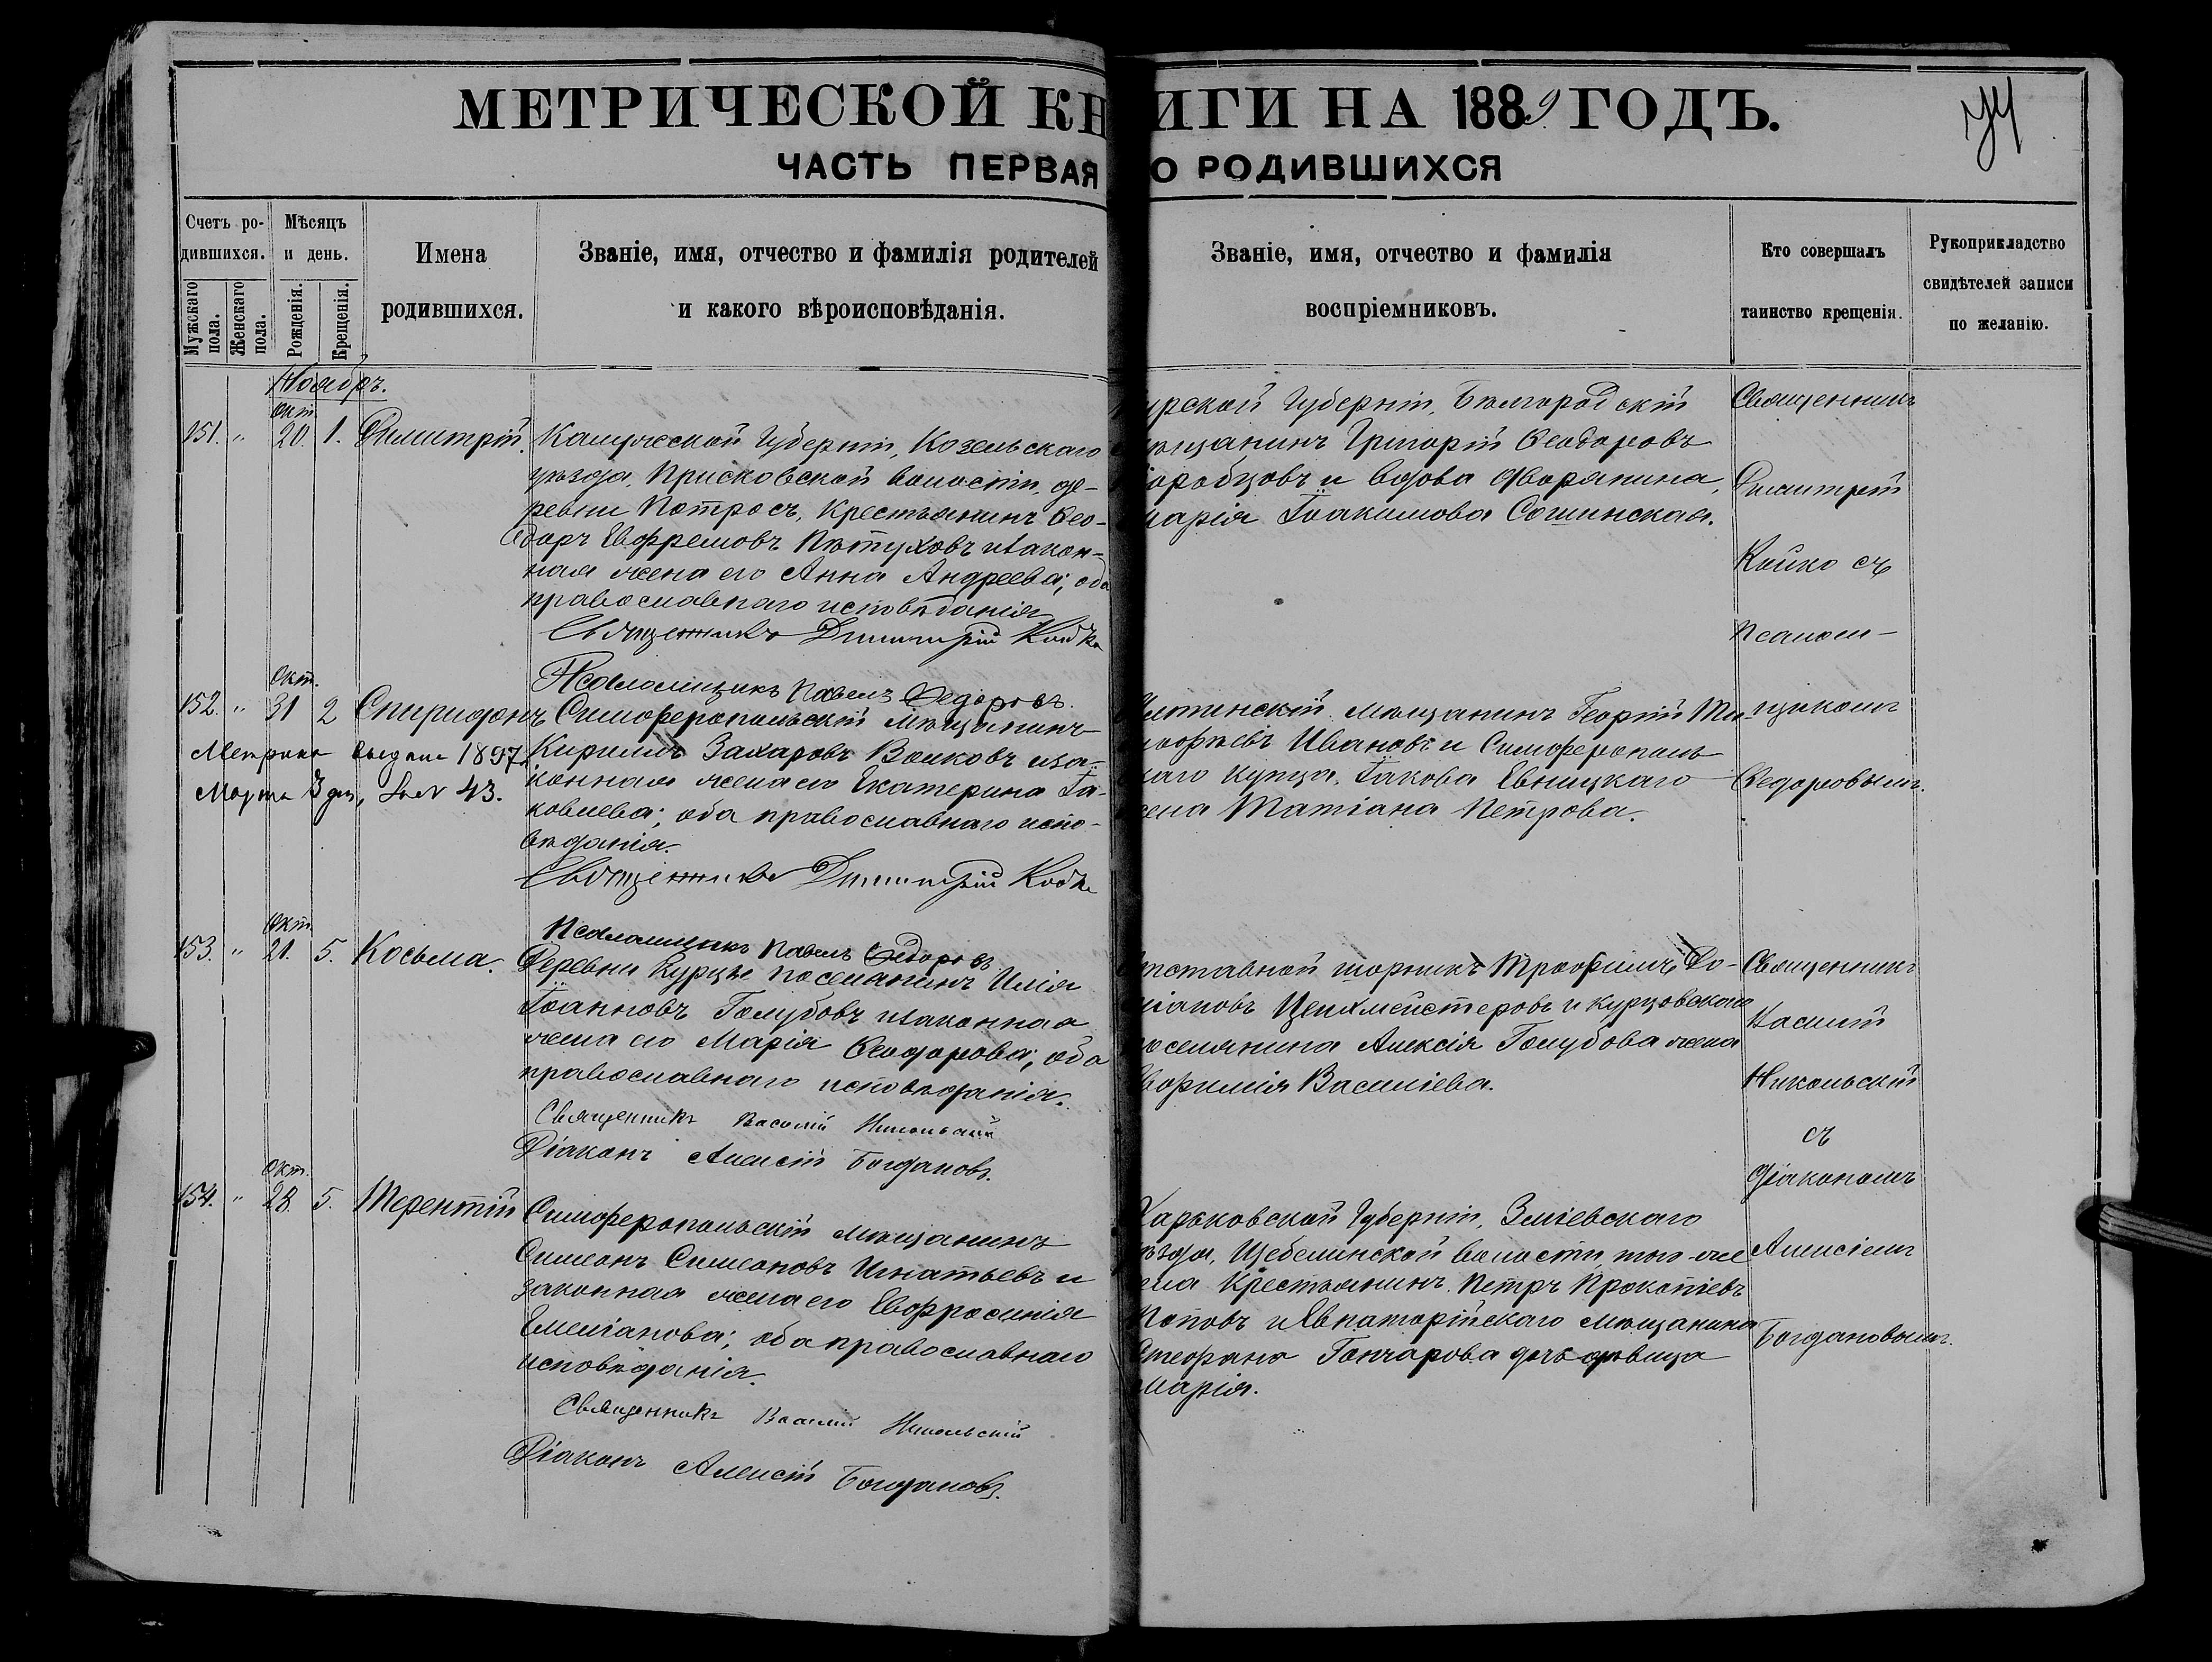 МЕТРИЧЕСКОЙ КНИГИ НА 1889 ГОДЪ.
74
ЧАСТЬ ПЕРВАЯ О РОДИВШИХСЯ
Счетъ ро-
дившихся.
Мужскаго пола.
Женскаго пола.
Мѣсяцъ
и день.
Рожденія.
Крещенія.
Имена
родившихся.
Званіе, имя, отчество и фамилія родителей
и какого вѣроисповѣданія.
Званіе, имя, отчество и фамилія
воспріемниковъ.
Кто совершалъ
таинство крещенія.
Рукоприкладство
свидѣтелей записи
по желанію.
Ноябрь.
Окт.
151. " 20. 1. Димитрій.
Калужской Губерніи, Козельскаго
уѣзда, Прысковской волости, де-
ревни Потросъ, Крестьянинъ Ѳео-
доръ Евфремовъ Пѣтуховъ и закон-
ная жена его Анна Андреева; оба
православнаго исповѣданія
Священникъ Димитрій Койко
Псаломщикъ Павелъ Ѳедоровъ.
урской Губерніи, Бѣлгородскій
ѣщанинъ Григорій Ѳеодоровъ
оробцовъ и вдова дворянина,
марія Іоакимова Сошинская.
Священникъ
Димитрій
Койко съ
Псалом-
щикомъ
Ѳедоровымъ.
Окт.
152. " 31 2 Спиридонъ
Метрика выдана 1897
Марта 3 дня, за № 43.
Симферопольскій Мѣщанинъ
Кириллъ Захаровъ Волковъ и за-
конная жена его Екатерина Іа-
ковлева; оба православнаго испо-
вѣданія.
Священникъ Димитрій Койко
Псаломщикъ Павелъ Ѳедоровъ
мѣщанинъ Георгій Ти-
моѳеевъ Ивановъ и Симферополь
скаго купца Іакова Евницкаго
жена Татіана Петрова.
Окт.
153. " 21. 5. Косьма.
Деревни Курцы поселянинъ Илія
Іоанновъ Голубовъ и законная
жена его Марія Ѳеодорова; оба
православнаго исповѣданія.
Священникъ Василій Никольскій
Діаконъ Алексій Богдановъ.
тставной шорникъ Трофимъ До-
Цейхмейстеровъ и курцовскаго
оселянина Алексія Голубова жена
вфимія Василіева.
Священникъ
Василій
Никольскій
съ
діакономъ
Алексіемъ
Богдановымъ.
Окт.
154. " 28. 5. Терентій
Симферопольскій мѣщанинъ
Симеонъ Симеоновъ Игнатьевъ и
законная жена его Евфросинія
Емеліанова; оба православнаго
исповѣданія.
Священникъ Василій Никольскій
Діаконъ Алексій Богдановъ.
Харьковской Губерніи, Зміевскаго
ѣзда, Щебелинской волости, того-же
ела Крестьянинъ Петръ Прокопіевъ
Поповъ и Евпаторійскаго мѣщанина
Стефана Гончарова дочь дѣвица
Марія.